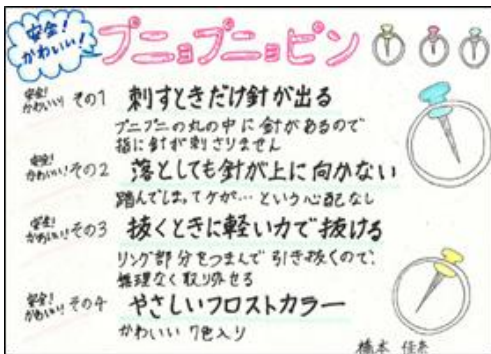 安全!
かわいい!
プニョプニョピン
安全!
かわいい! その1 刺すときだけ針が出る
プニプニの丸の中に針があるので
指に針が刺さりません
安全!
かわいい! その2 落としても針が上に向かない
踏んでしまってケガが…という心配なし
安全!
かわいい! その3 抜くときに軽い力で抜ける
リング部分をつまんで引き抜くので、
無理なく取り外せる
安全!
かわいい! その4 やさしいフロストカラー
かわいい 7色入り
橋本 佳奈